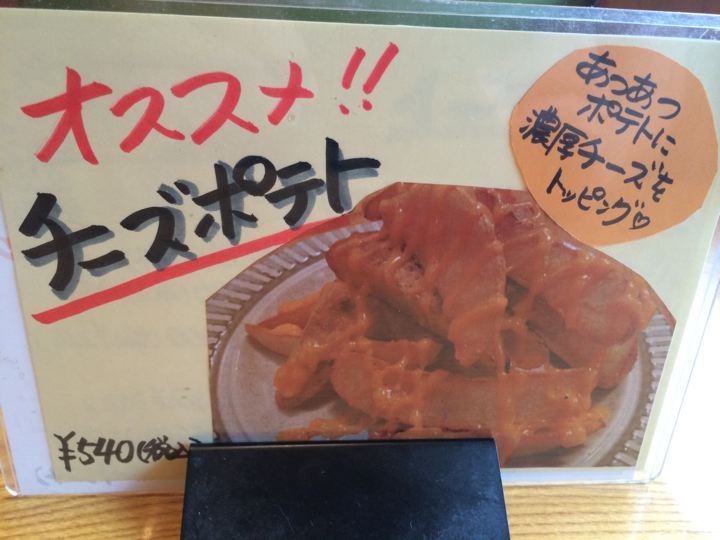 オススメ!!
チーズポテト
あつあつ
ポテトに
濃厚チーズを
トッピング♡
¥540(税込)